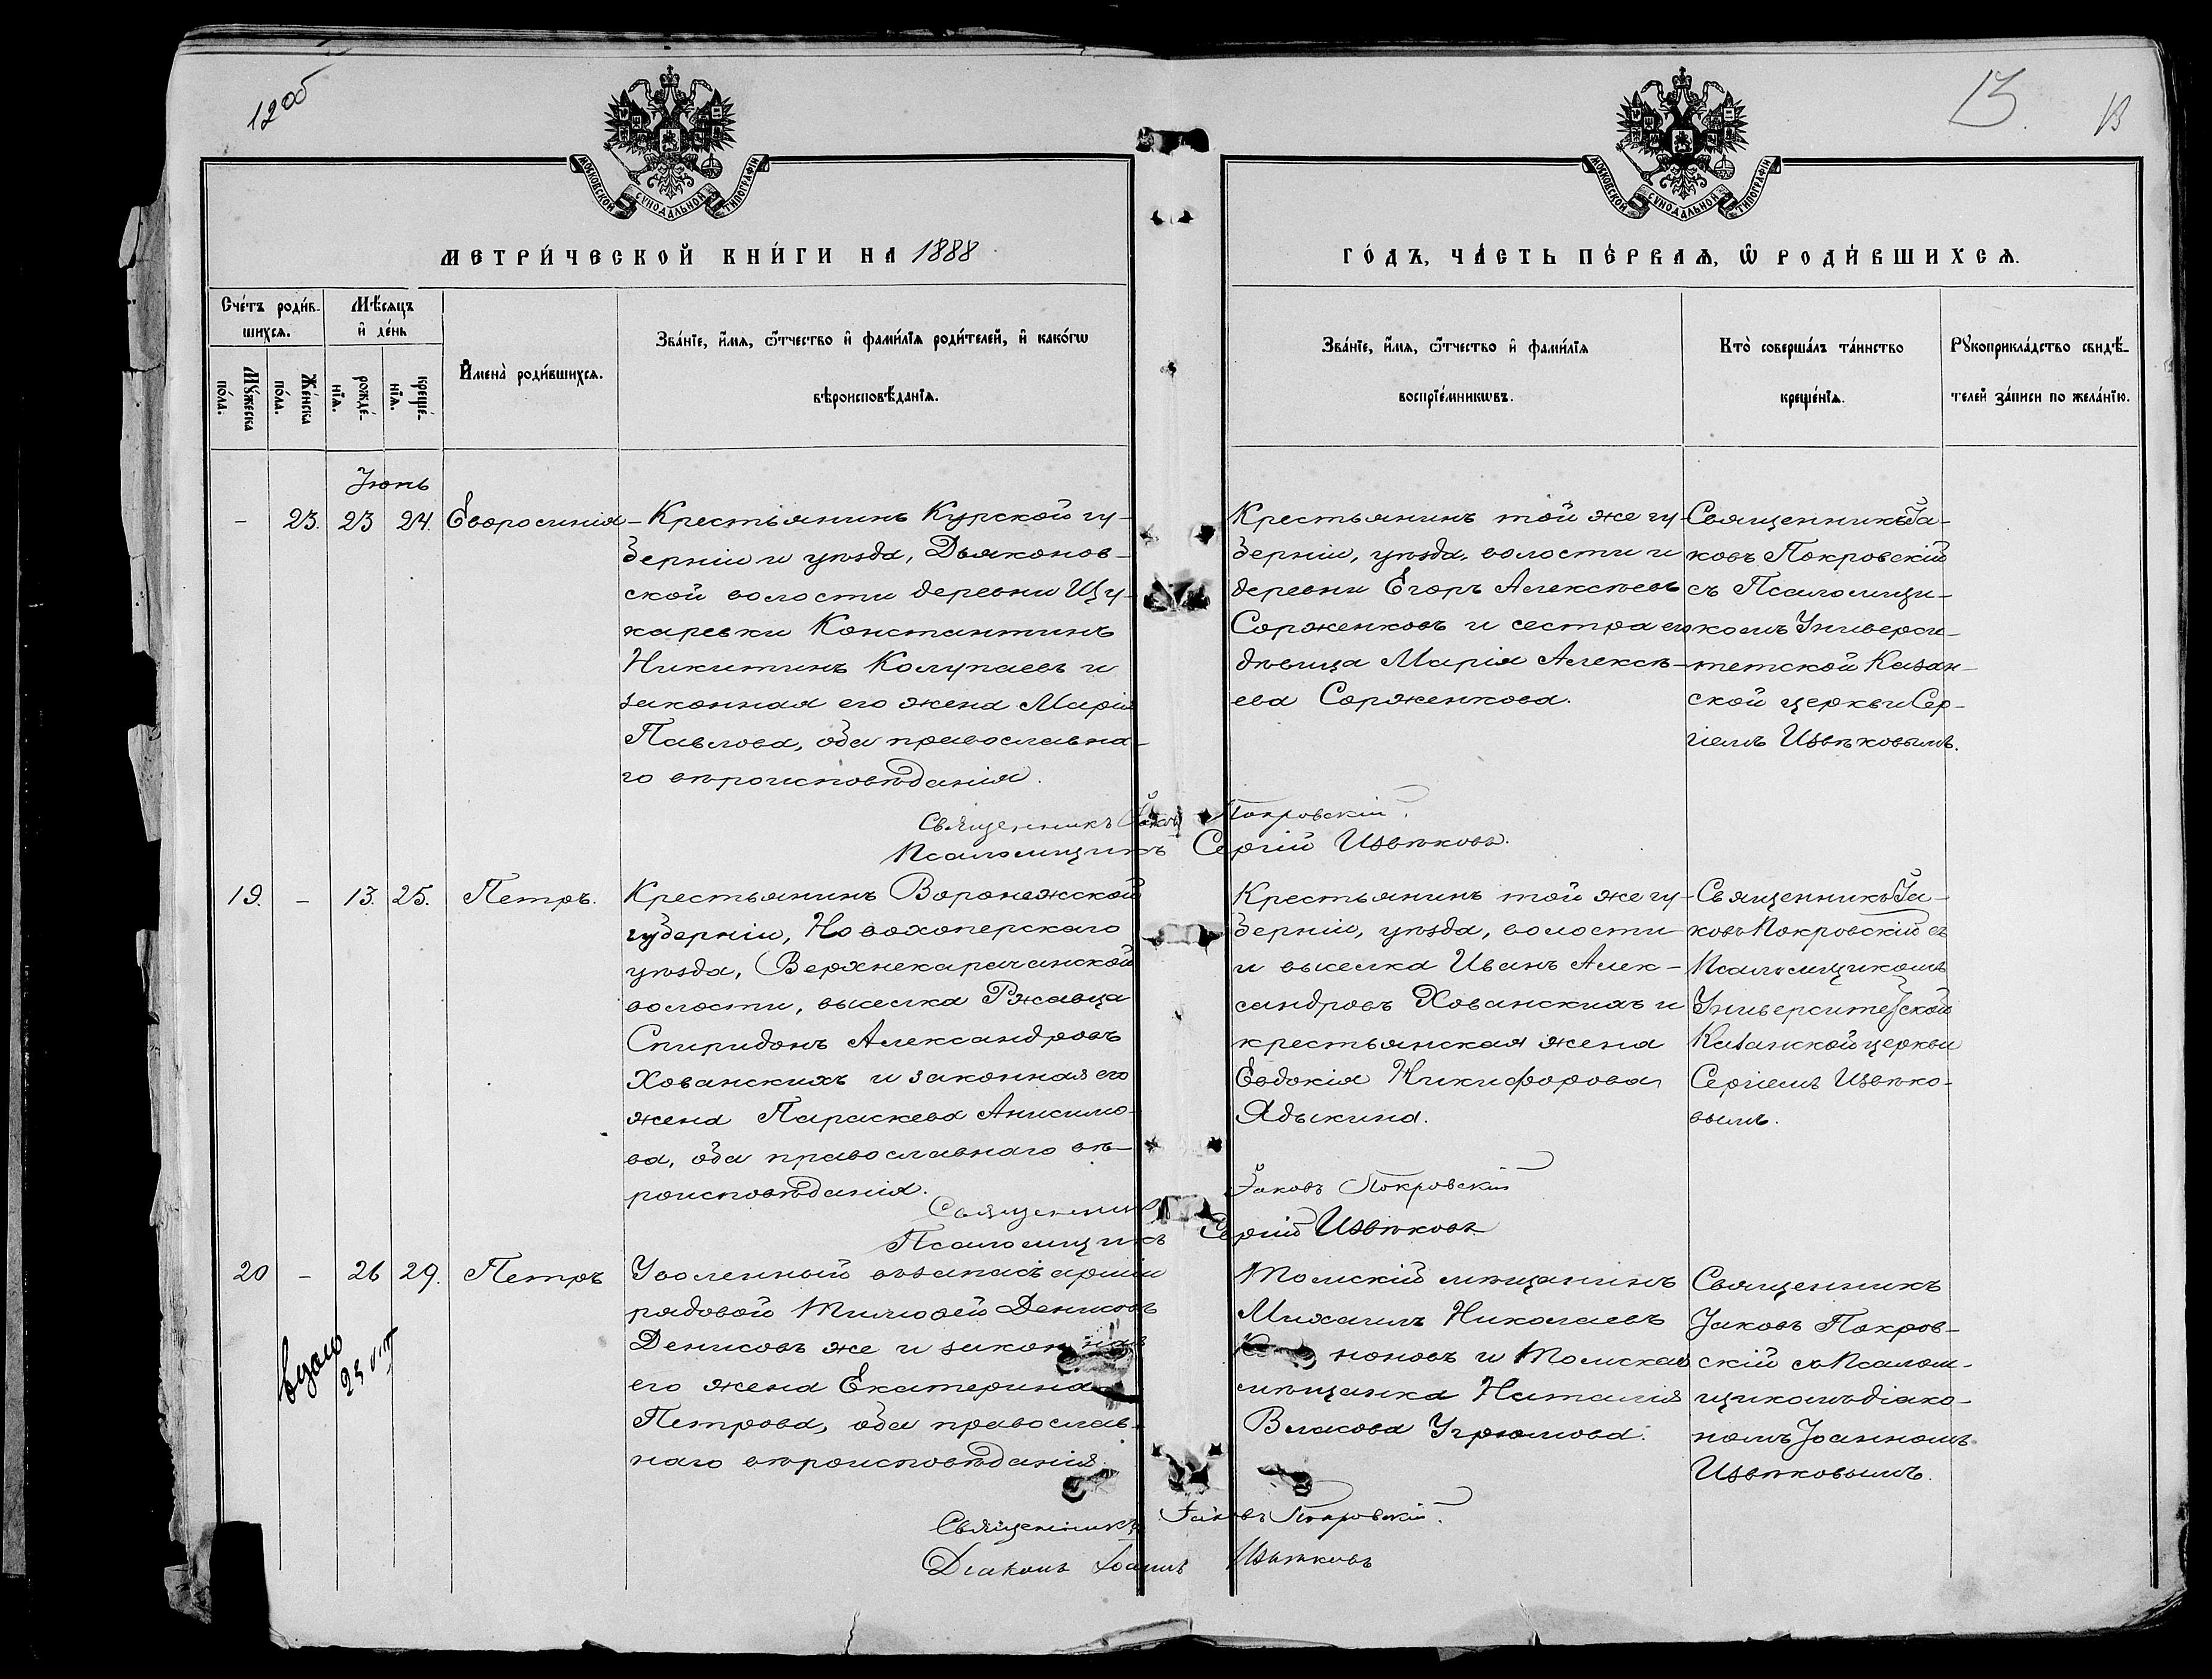 12об
13.
13
МОСКОВСКОЙ СѴНОДАЛЬНОЙ ТИПОГРАФІИ
МОСКОВСКОЙ СѴНОДАЛЬНОЙ ТИПОГРАФІИ
МЕТРИ́ЧЕСКОЙ КНИ́ГИ НА 1888
ГО́ДЪ, ЧА́СТЬ ПЕ́РВАѦ, Ѡ҆ РОДИ́ВШИХСѦ.
Сче́тъ роди́в-
шихсѧ.
Мѣ́сѧцъ
и҆ де́нь
Мꙋ́жеска
по́ла.
Же́нска
по́ла.
рожде́-
нїѧ.
креще́-
нїѧ.
И҆мена̀ роди́вшихсѧ.
Зва́нїе, и҆́мѧ, ѻ҆́тчество и҆ фами́лїѧ роди́телей, и҆ како́гѡ
вѣроисповѣ́данїѧ.
Зва́нїе, и҆́мѧ, ѻ҆́тчество и҆ фами́лїѧ
воспрїе́мникѡвъ.
Кто̀ соверша́лъ та́инство
креще́нїѧ.
Рꙋкоприкла́дство свидѣ́-
телей за́писи по жела́нїю.
Іюнь
- 23. 23 24. Евфросинія
Крестьянинъ Курской гу-
берніи и уѣзда, Дьяконов-
ской волости деревни Щу-
каревки Константинъ
Никитинъ Колупаевъ и
законная его жена Марія
Павлова, оба православна-
го вѣроисповѣданія.
Крестьянинъ той же гу-
берніи, уѣзда, волости и
деревни Егоръ Алексѣевъ
Сорженковъ и сестра его
дѣвица Марія Алексѣ-
ева Сорженкова.
Священникъ Іа-
ковъ Покровскій
съ Псаломщи-
комъ Универси-
тетской Казан-
ской церкви Сер-
гіемъ Извѣковымъ.
Священникъ Іаковъ Покровскій.
Псаломщикъ Сергій Извѣковъ.
19. - 13. 25. Петръ.
Крестьянинъ Воронежской
губерніи, Новохоперскаго
уѣзда, Верхнекарачанской
волости, выселка Ржавца
Спиридонъ Александровъ
Хованскихъ и законная его
жена Параскева Анисимо-
ва, оба православнаго вѣ-
роисповѣданія.
Крестьянинъ той же гу-
берніи, уѣзда, волости
и выселка Иванъ Алек-
сандровъ Хованскихъ и
крестьянская жена
Евдокія Никифорова
Ядыкина.
Священникъ Іа-
ковъ Покровскій съ
Псаломщикомъ
Университетской
Казанской церкви
Сергіемъ Извѣко-
вымъ.
Священникъ Іаковъ Покровскій
Псаломщикъ Сергій Извѣковъ
20 - 26 29. Петръ
Уволенный въ запасъ арміи
рядовой Тимофей Денисовъ
Денисовъ же и законная
его жена Екатерина
Петрова, оба православ-
наго вѣроисповѣданія.
Томскій мѣщанинъ
Михаилъ Николаевъ
коновъ и Томская
мѣщанка Наталія
Власова Угрюмова.
Священникъ
Іаковъ Покров-
скій съ Псалом-
щикомъ діако-
номъ Іоанномъ
Извѣковымъ.
Священникъ Іаковъ Покровскій.
Діаконъ Іоаннъ Извѣковъ